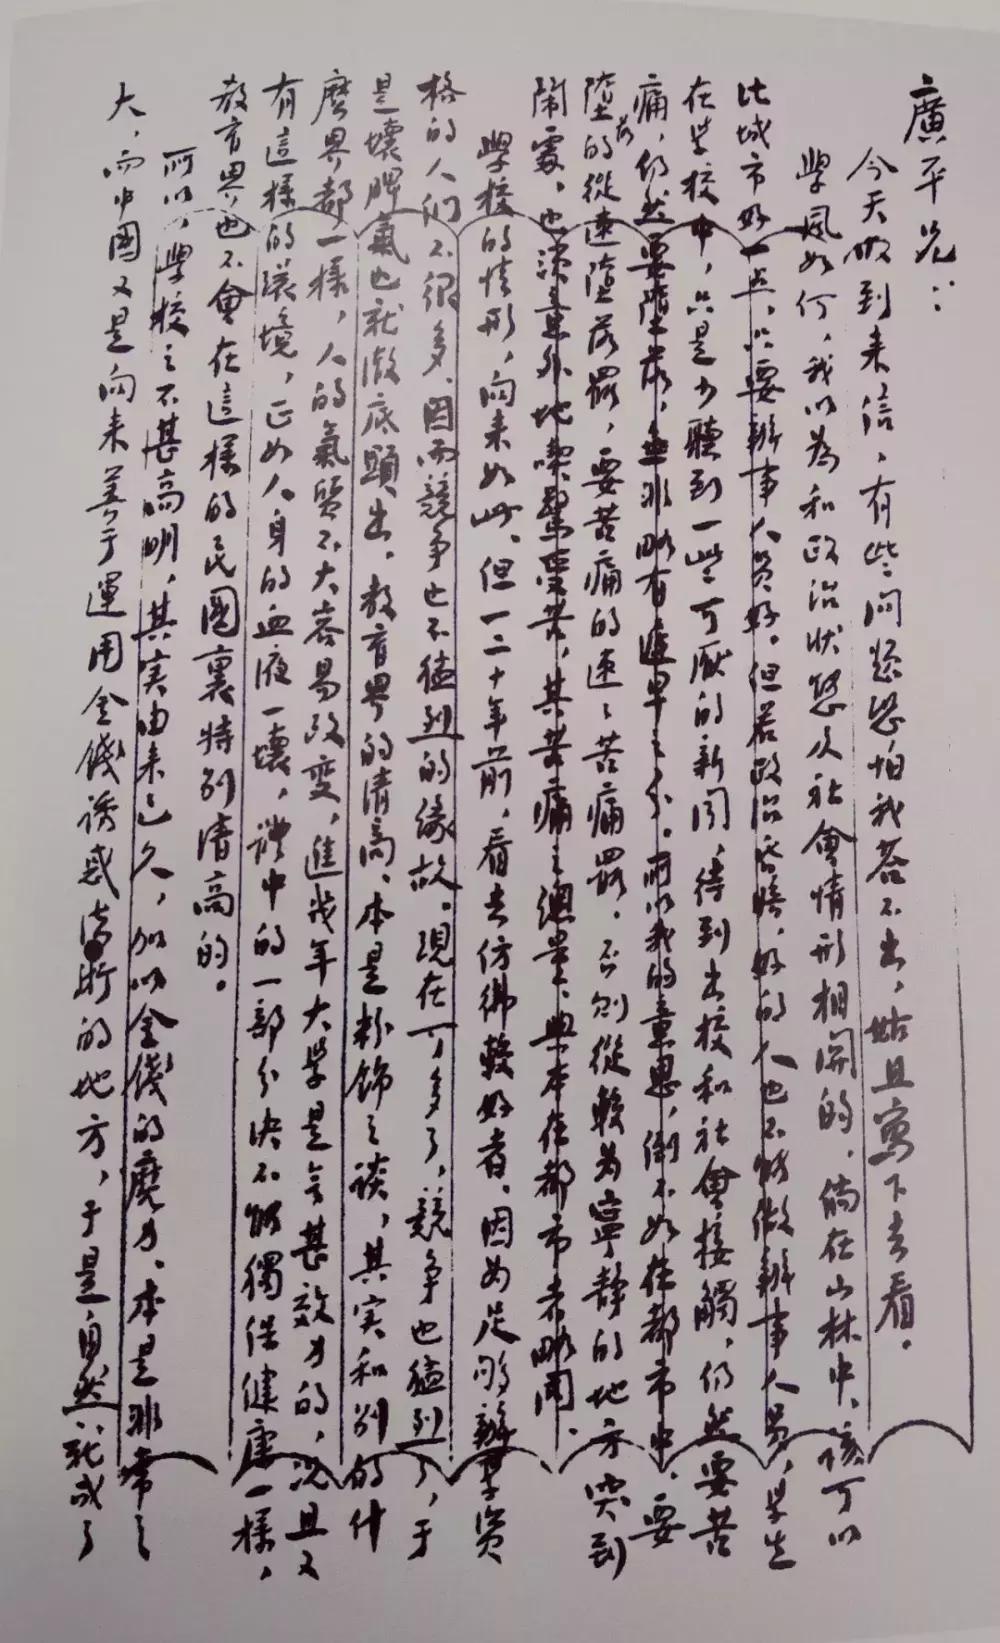 廣平兄：
今天收到来信，有些问题恐怕我答不出，姑且寫下去看。
學風如何，我以為和政治状態及社會情形相關的，倘在山林中，該可以
比城市好一点，只要辦事人员好。但若政治昏暗，好的人也不能做辦事人员，學生
在学校中，只是少聽到一些可厭的新闻，待到出校和社會接觸，仍然要苦
痛，仍然要堕落，無非略有遲早之分。所以我的意思，倒不如在都市中，要
堕落的從速堕落罷，要苦痛的速速苦痛罷，否則從較為寧静的地方突到
闹處，也須意外地喫驚受苦，其苦痛之總量，與本在都市者略同。
學校的情形，向来如此，但一二十年前，看去仿彿較好者，因为足够辦学資
格的人们不很多，因而競争也不猛烈的缘故。現在可多了，競争也猛烈了，于
是壞脾氣也就徹底顯出。教育界的清高，本是粉饰之談，其实和别的什
麽界都一樣，人的氣質不大容易改变，進幾年大学是無甚效力的，况且又
有這樣的環境，正如人身的血液一壞，體中的一部分决不能獨保健康一樣，
教育界也不會在這樣的民國裏特别清高的。
所以，學校之不甚高明，其实由来已久，加以金錢的魔力，本是非常之
大，而中國又是向来善于運用金錢诱惑法術的地方，于是自然就成了